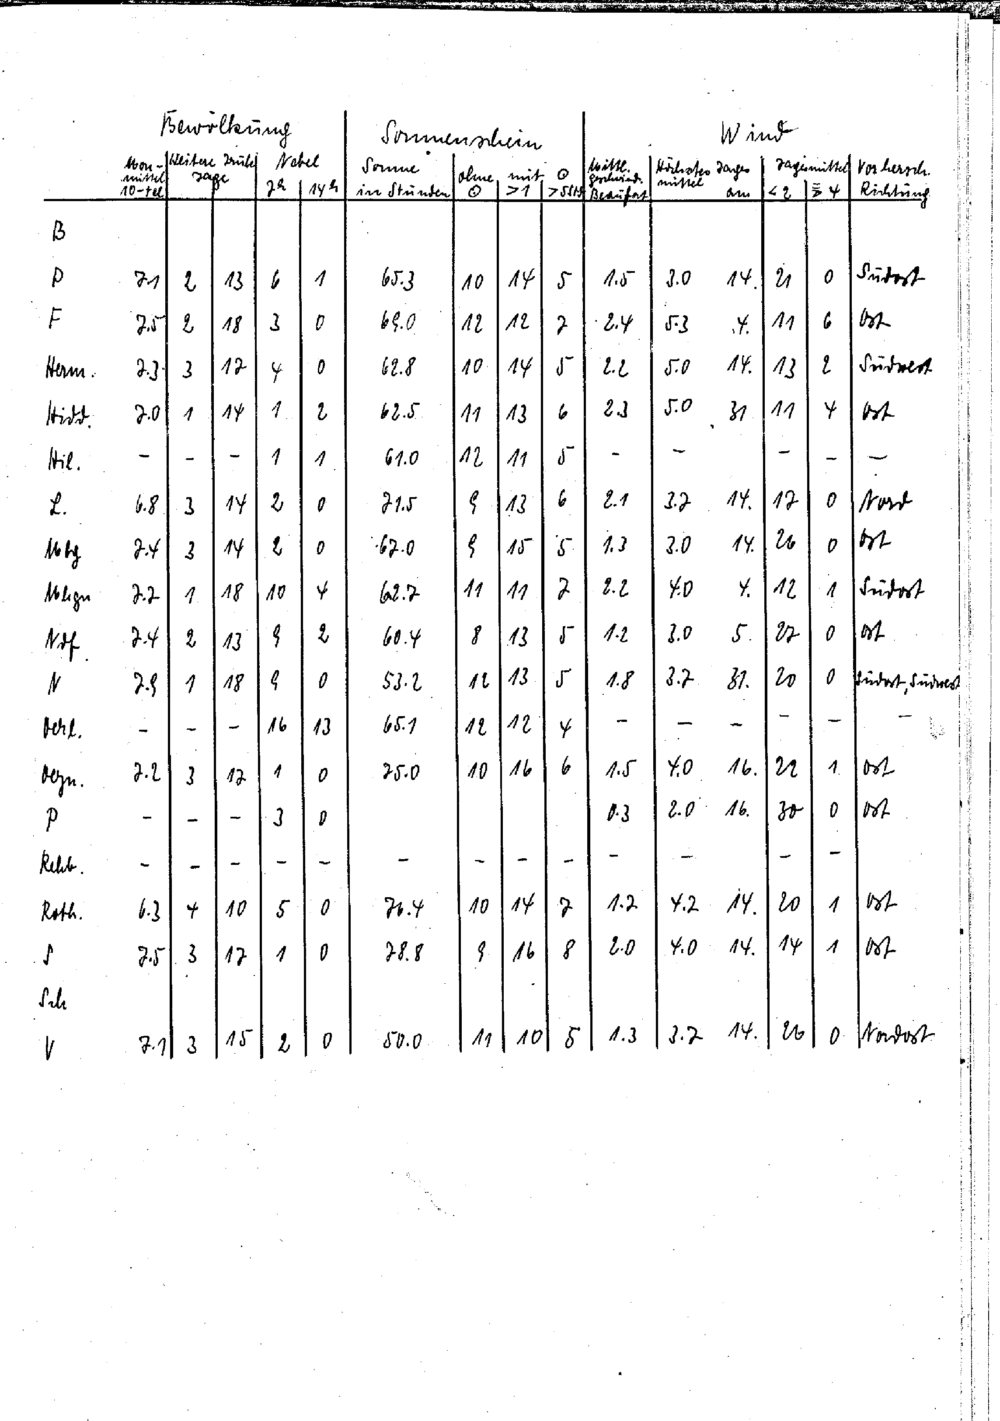 Bewölkung Sonnenschein Wind
Mon- Heitere Trübe Nebel Sonne ohne mit ☉ Mittl. Höchstes Tages Tagesmittel Vorhersch.
mittel Tage 7h 14h in Stunden ☉ >1 >5Std mittel am <2 ≥ 4 Richtung
10-tel Beaufort
B
P 7.1 2 13 6 1 65.3 10 14 5 1.5 3.0 14. 21 0 Südost
F 7.5 2 18 3 0 69.0 12 12 7 2.4 5.3 4. 11 6 Ost
Herm. 7.3 3 17 4 0 62.8 10 14 5 2.2 5.0 14. 13 2 Südwest
Hidd. 7.0 1 14 1 2 62.5 11 13 6 2.3 5.0 31 11 4 Ost
Hil. – – – 1 1 61.0 12 11 5 – – – – –
L. 6.8 3 14 2 0 71.5 9 13 6 2.1 3.7 14. 17 0 Nord
Mbg 7.4 3 14 2 0 67.0 9 15 5 1.3 3.0 14. 26 0 Ost
7.7 1 18 10 4 62.7 11 11 7 2.2 4.0 4. 12 1 Südost
Ndf. 7.4 2 13 9 2 60.4 8 13 5 1.2 3.0 5. 27 0 Ost
N 7.9 1 18 9 0 53.2 12 13 5 1.8 3.7 31. 20 0 Südost, Südwest
Oerl. – – – 16 13 65.1 12 12 4 – – – – – –
7.2 3 17 1 0 75.0 10 16 6 1.5 4.0 16. 22 1 Ost
P – – – 3 0 0.3 2.0 16. 30 0 Ost
Rehb. – – – – – – – – – – – – –
Roth. 6.3 4 10 5 0 76.4 10 14 7 1.7 4.2 14. 20 1 Ost
S 7.5 3 17 1 0 78.8 9 16 8 2.0 4.0 14. 14 1 Ost
Sch
V 7.1 3 15 2 0 50.0 11 10 5 1.3 3.7 14. 26 0 Nordost